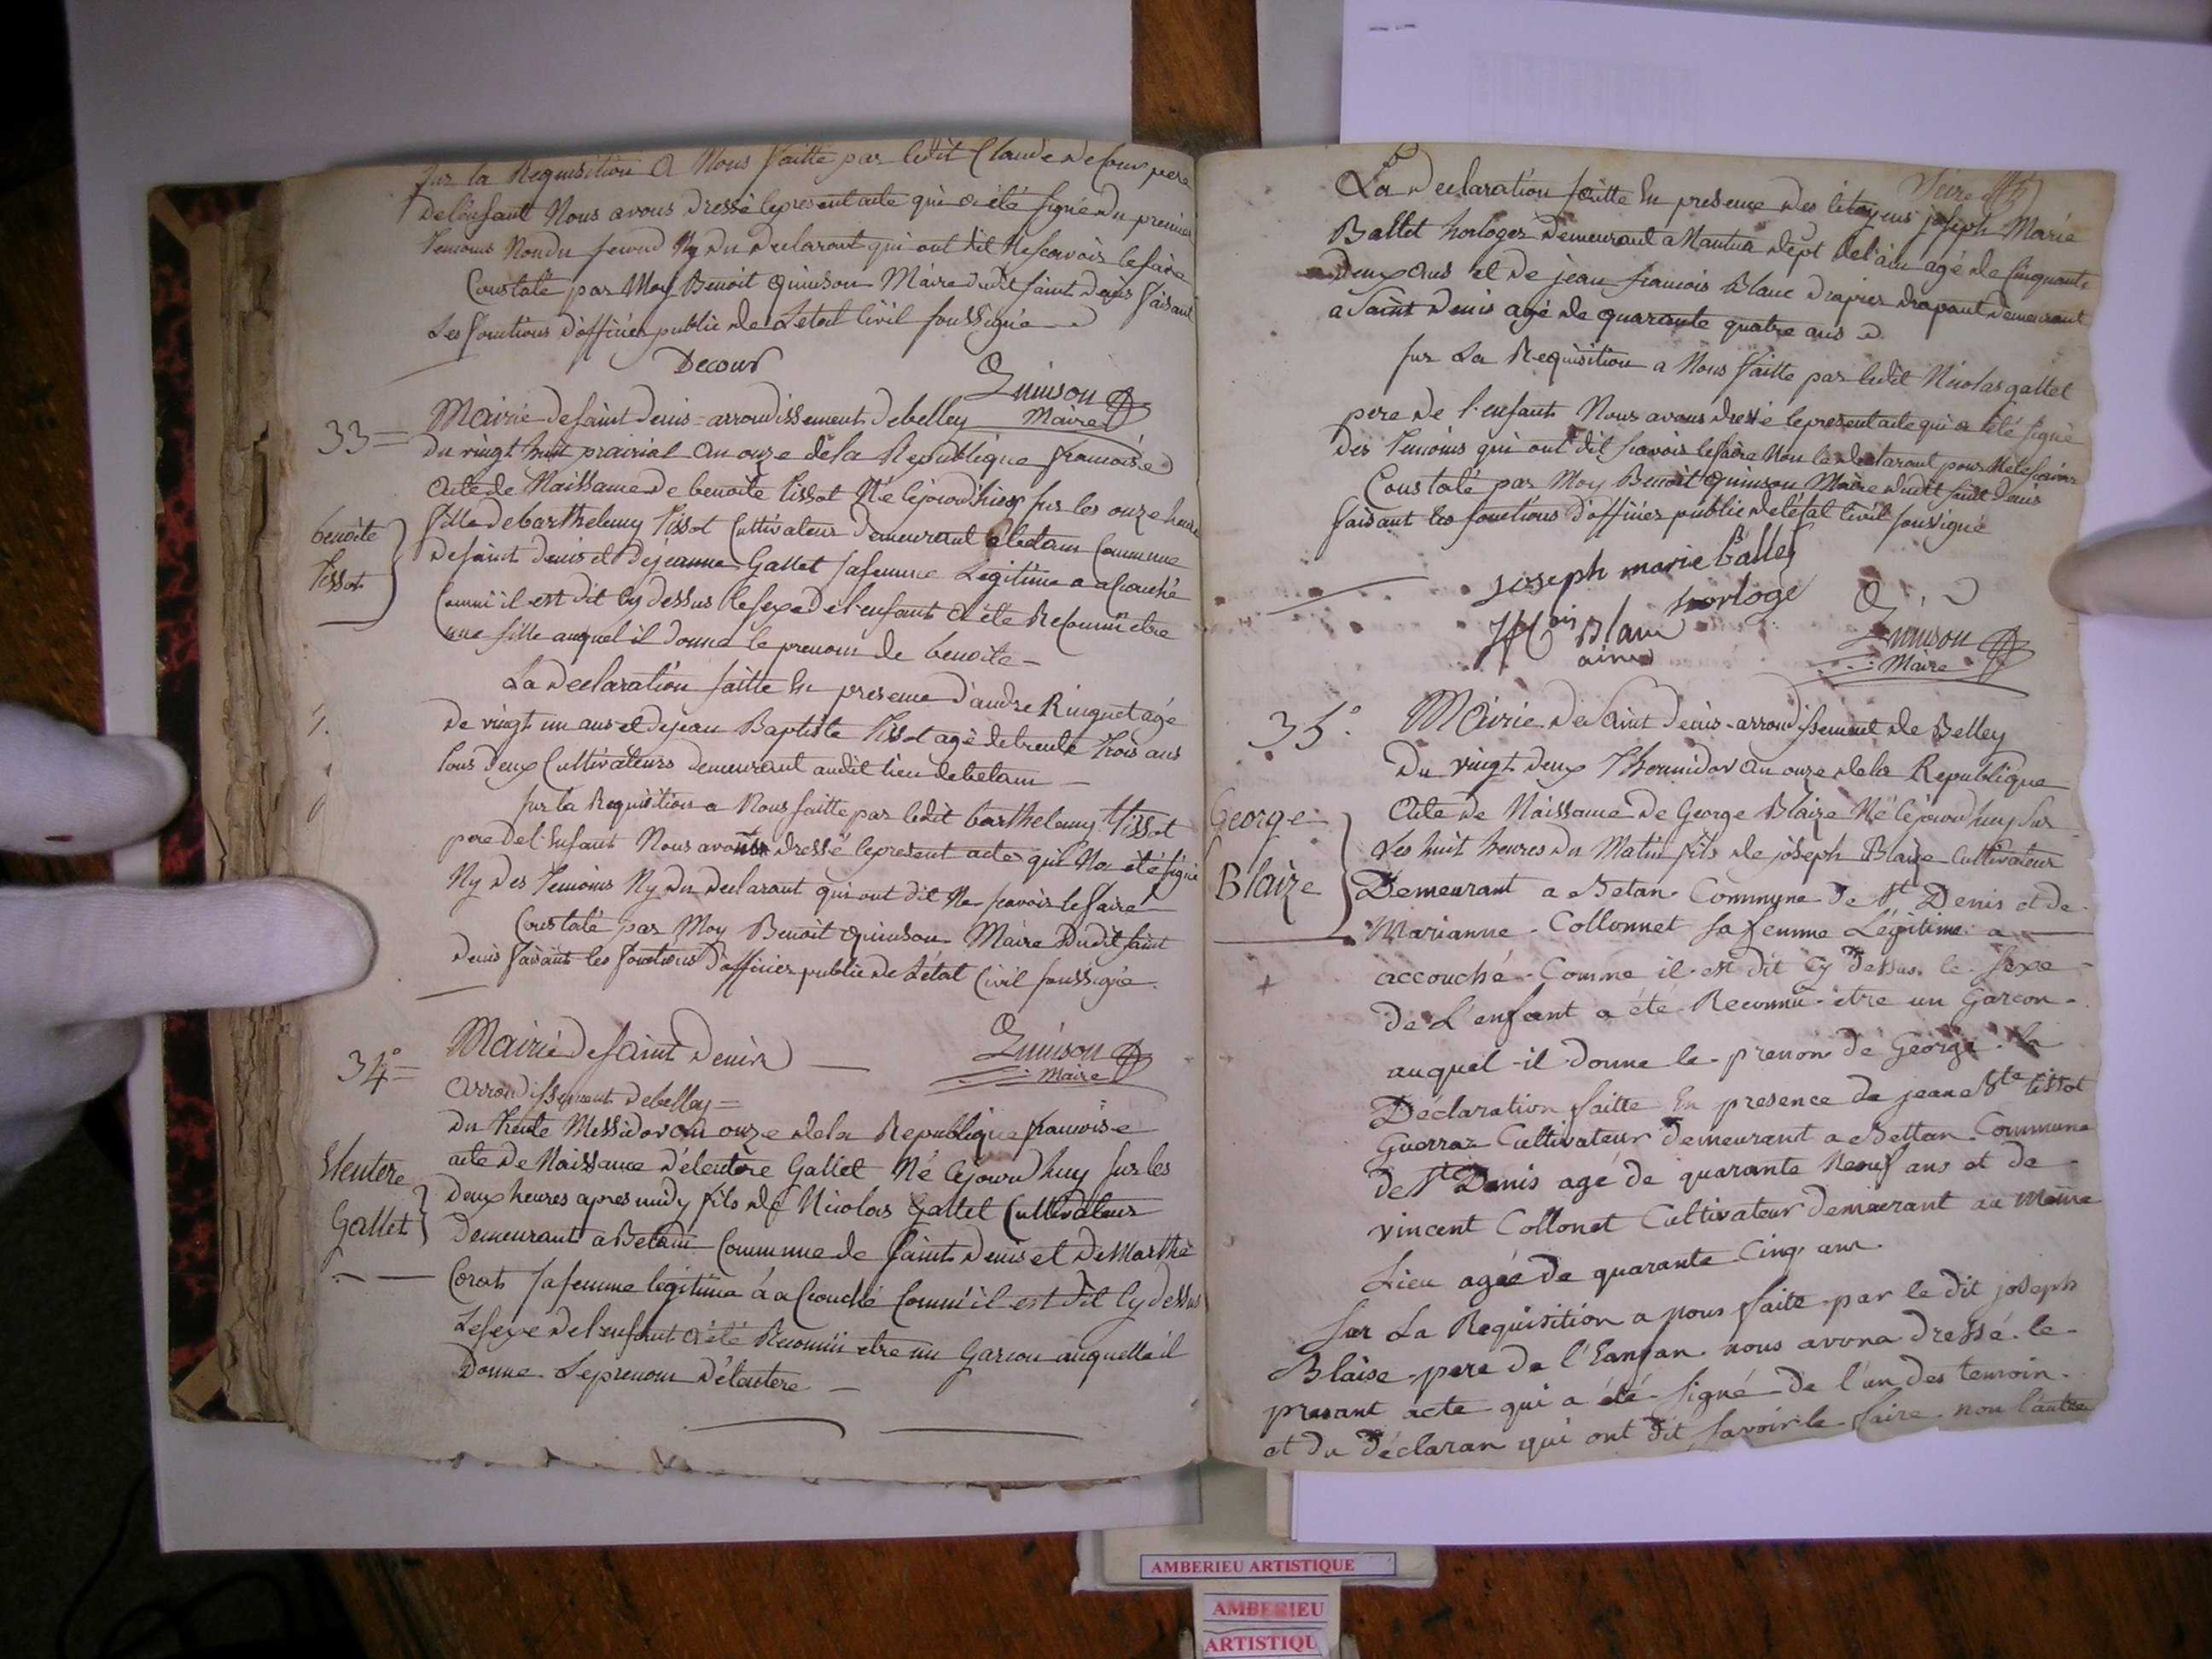 Sur la Requisition a Nous faitte par ledit Claude Decour pere
de l'enfant Nous avons dressé le present acte qui a été signé du premier
temoins Non du second Ny du declarant qui ont dit Ne scavoir le faire
Constaté par Moy Benoit Quinson Maire dudit saint denis faisant
Les fonctions d'officier public de Letat Civil soussigné
Decour
Quinson
Maire
33=
Mairie de saint denis = arrondissement de belley
Du vingt huit prairial an onze de la Republique francoise
Acte de Naissance de benoite tissot Né cejourdhuy sur les onze heure
benoite
tissot
fille de barthelemy tissot Cultivateur demeurant a betam Commune
de saint denis et de jeanne Gallet sa femme Legitime a acouché
Comm'il est dit cy dessus le sexe de l'enfant a été Reconnu etre
une fille auquel il donne le prenom de benoite -
La declaration faitte En presence d'andre Ringuet agé
de vingt un ans et de jean Baptiste tissot agé de trente trois ans
tous deux Cultivateurs demeurant audit lieu de betam
Sur la Requisition a Nous faitte par ledit barthelemy tissot
pere de l'Enfant Nous avons dressé le present acte qui Na été signé
Ny des temoins Ny du declarant qui ont dit Ne scavoir le faire
Constaté par Moy Benoit Quinson Maire dudit saint
denis faisant les fonctions d'officier public de L'état Civil soussigné.
Quinson
Maire
34°=
Mairie de saint denis
arrondissement de belley =
Du trente Messidor an onze de la Republique francoise
Eleutere
Gallet
acte de Naissance d'éleutere Gallet Né cejourdhuy sur les
deux heures apres midy fils de Nicolas Gallet Cultivateur
Demeurant a Betam Commune de saint denis et de Marthe
Corat sa femme legitime a acouché Comm'il est dit Cy dessus
Le sexe de l'enfant a été Reconnu etre un Garcon auquelle il
Donne Le prenom d'éleutere -
La declaration faitte En presence des citoyens joseph Marie
Ballet horloger demeurant a Nantua dépt de l'ain agé de cinquante
deux ans et de jean francois Blanc drapier drapant demeurant
a saint Denis agé de quarante quatre ans
Sur La Requisition a Nous faitte par ledit Nicolas gallet
pere de l'enfant Nous avons dressé le present acte qui a été signé
des temoins qui ont dit scavoir le faire Non le declarant pour Ne le scavoir
Constaté par Moy Benoit Quinson Maire dudit saint denis
faisant les fonctions d'officier public de létat Civil soussigné
joseph marie ballet
horloge
Blanc
ainé
Quinson
Maire
35°.
Mairie de Saint denis - arrondissement de Belley
Du vingt deux thermidor an onze de la Republique
George
Blaize
Acte de Naissance de George Blaize Né cejourdhuy sur
Les huit heures du Matin fils de joseph Blaize Cultivateur
Demeurant a Betan Commune de St Denis et de
Marianne Collonnet sa femme Légitime a
accouché Comme il est dit Cy dessus le sexe
de L'enfant a été Reconnu être un Garcon
auquel il donne le prenon de George la
Déclaration faitte En presence de jean Bte tissot
Guerraz Cultivateur demeurant a Bettan Commune
de St Denis agé de quarante Neouf ans et de
vincent Collonet Cultivateur demeurant au Même
Lieu agée de quarante Cinq ans
Sur La Requisition a nous faite par le dit joseph
Blaise pere de l'Eanfan nous avona dressé le
presant acte qui a été signé de l'un des temoin
et du déclaran qui ont dit savoir le faire non l'autre
AMBERIEU ARTISTIQUE
AMBERIEU
ARTISTIQU